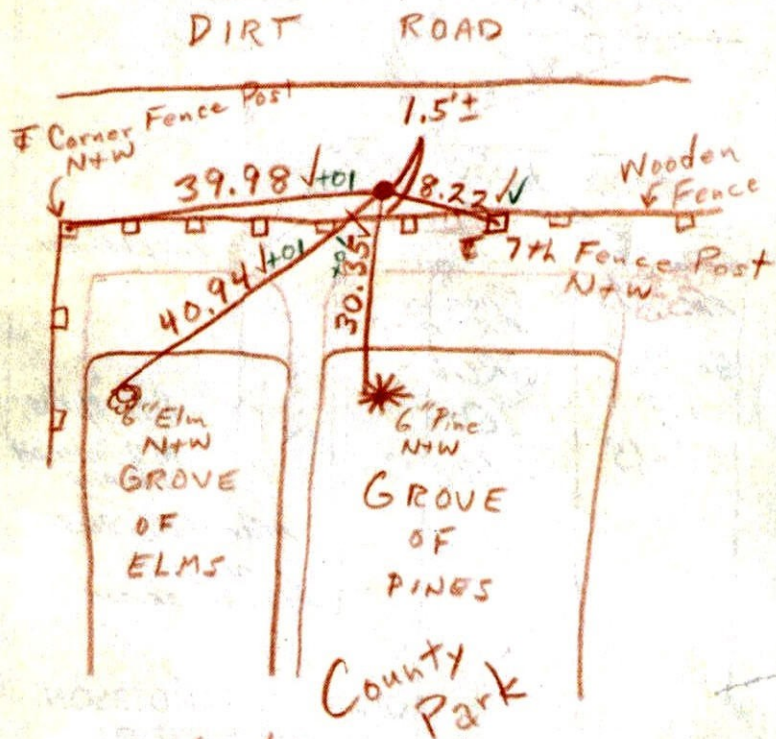 DIRT ROAD
℄ Corner Fence Post
N+W
1.5'±
39.98 √+01
8.22 √√
Wooden
Fence
40.94 √+01
30.35
℄ 7th Fence Post
N+W
6" Elm
N+W
GROVE
OF
ELMS
6" Pine
N+W
GROVE
OF
PINES
County
Park